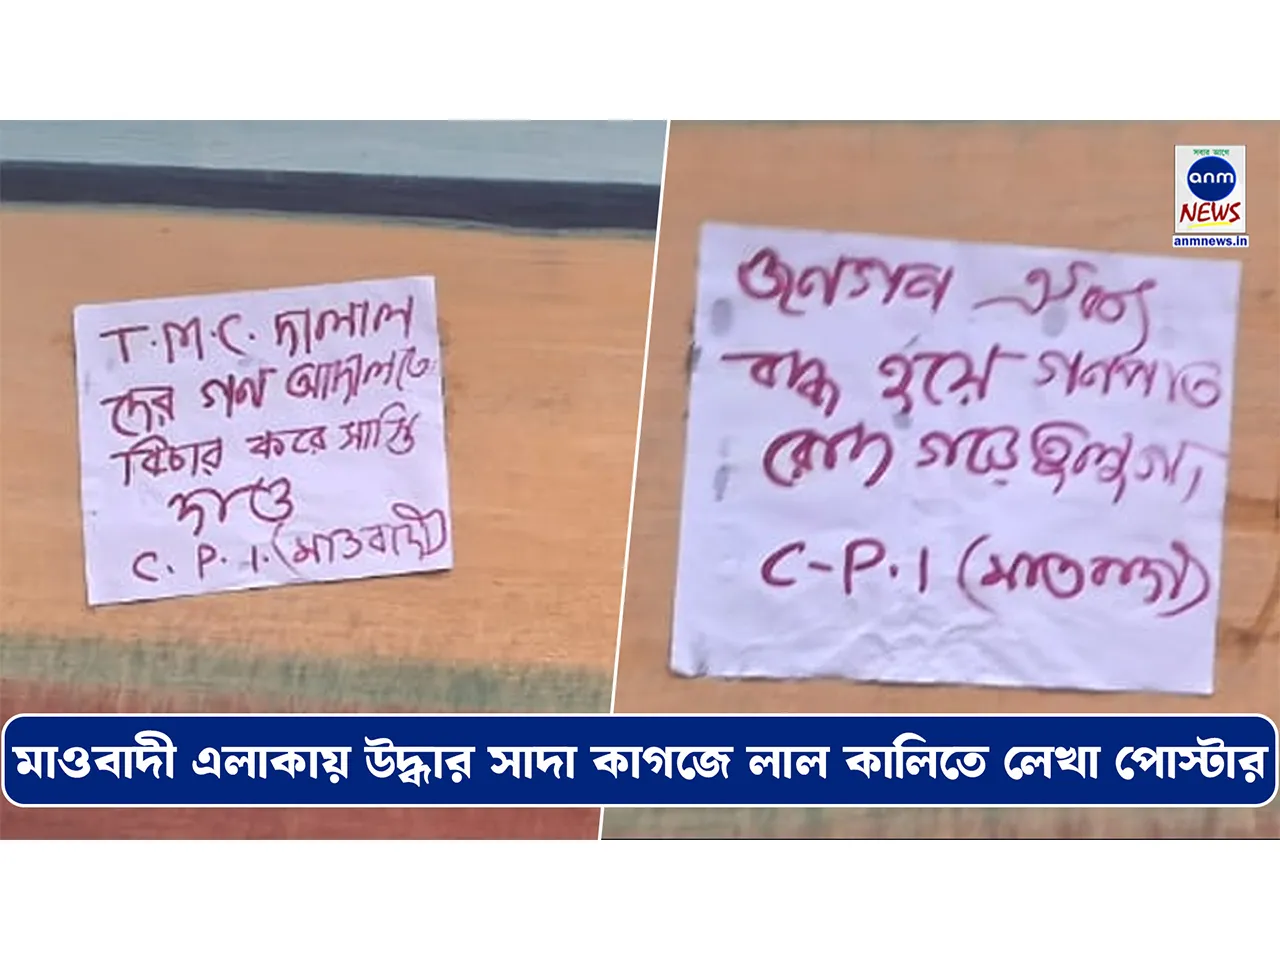 T.M.C. দালাল
দের গণ আদালতে
বিচার করে সাস্তি
দাও
C. P. I. (মাওবাদী)
জনগন ঐক্য
বদ্ধ হয়ে গনপ্রতি
রোধ গড়ে তুলুন,
C-P.I (মাওবাদী)
সবার আগে
anm
NEWS
anmnews.in
মাওবাদী এলাকায় উদ্ধার সাদা কাগজে লাল কালিতে লেখা পোস্টার